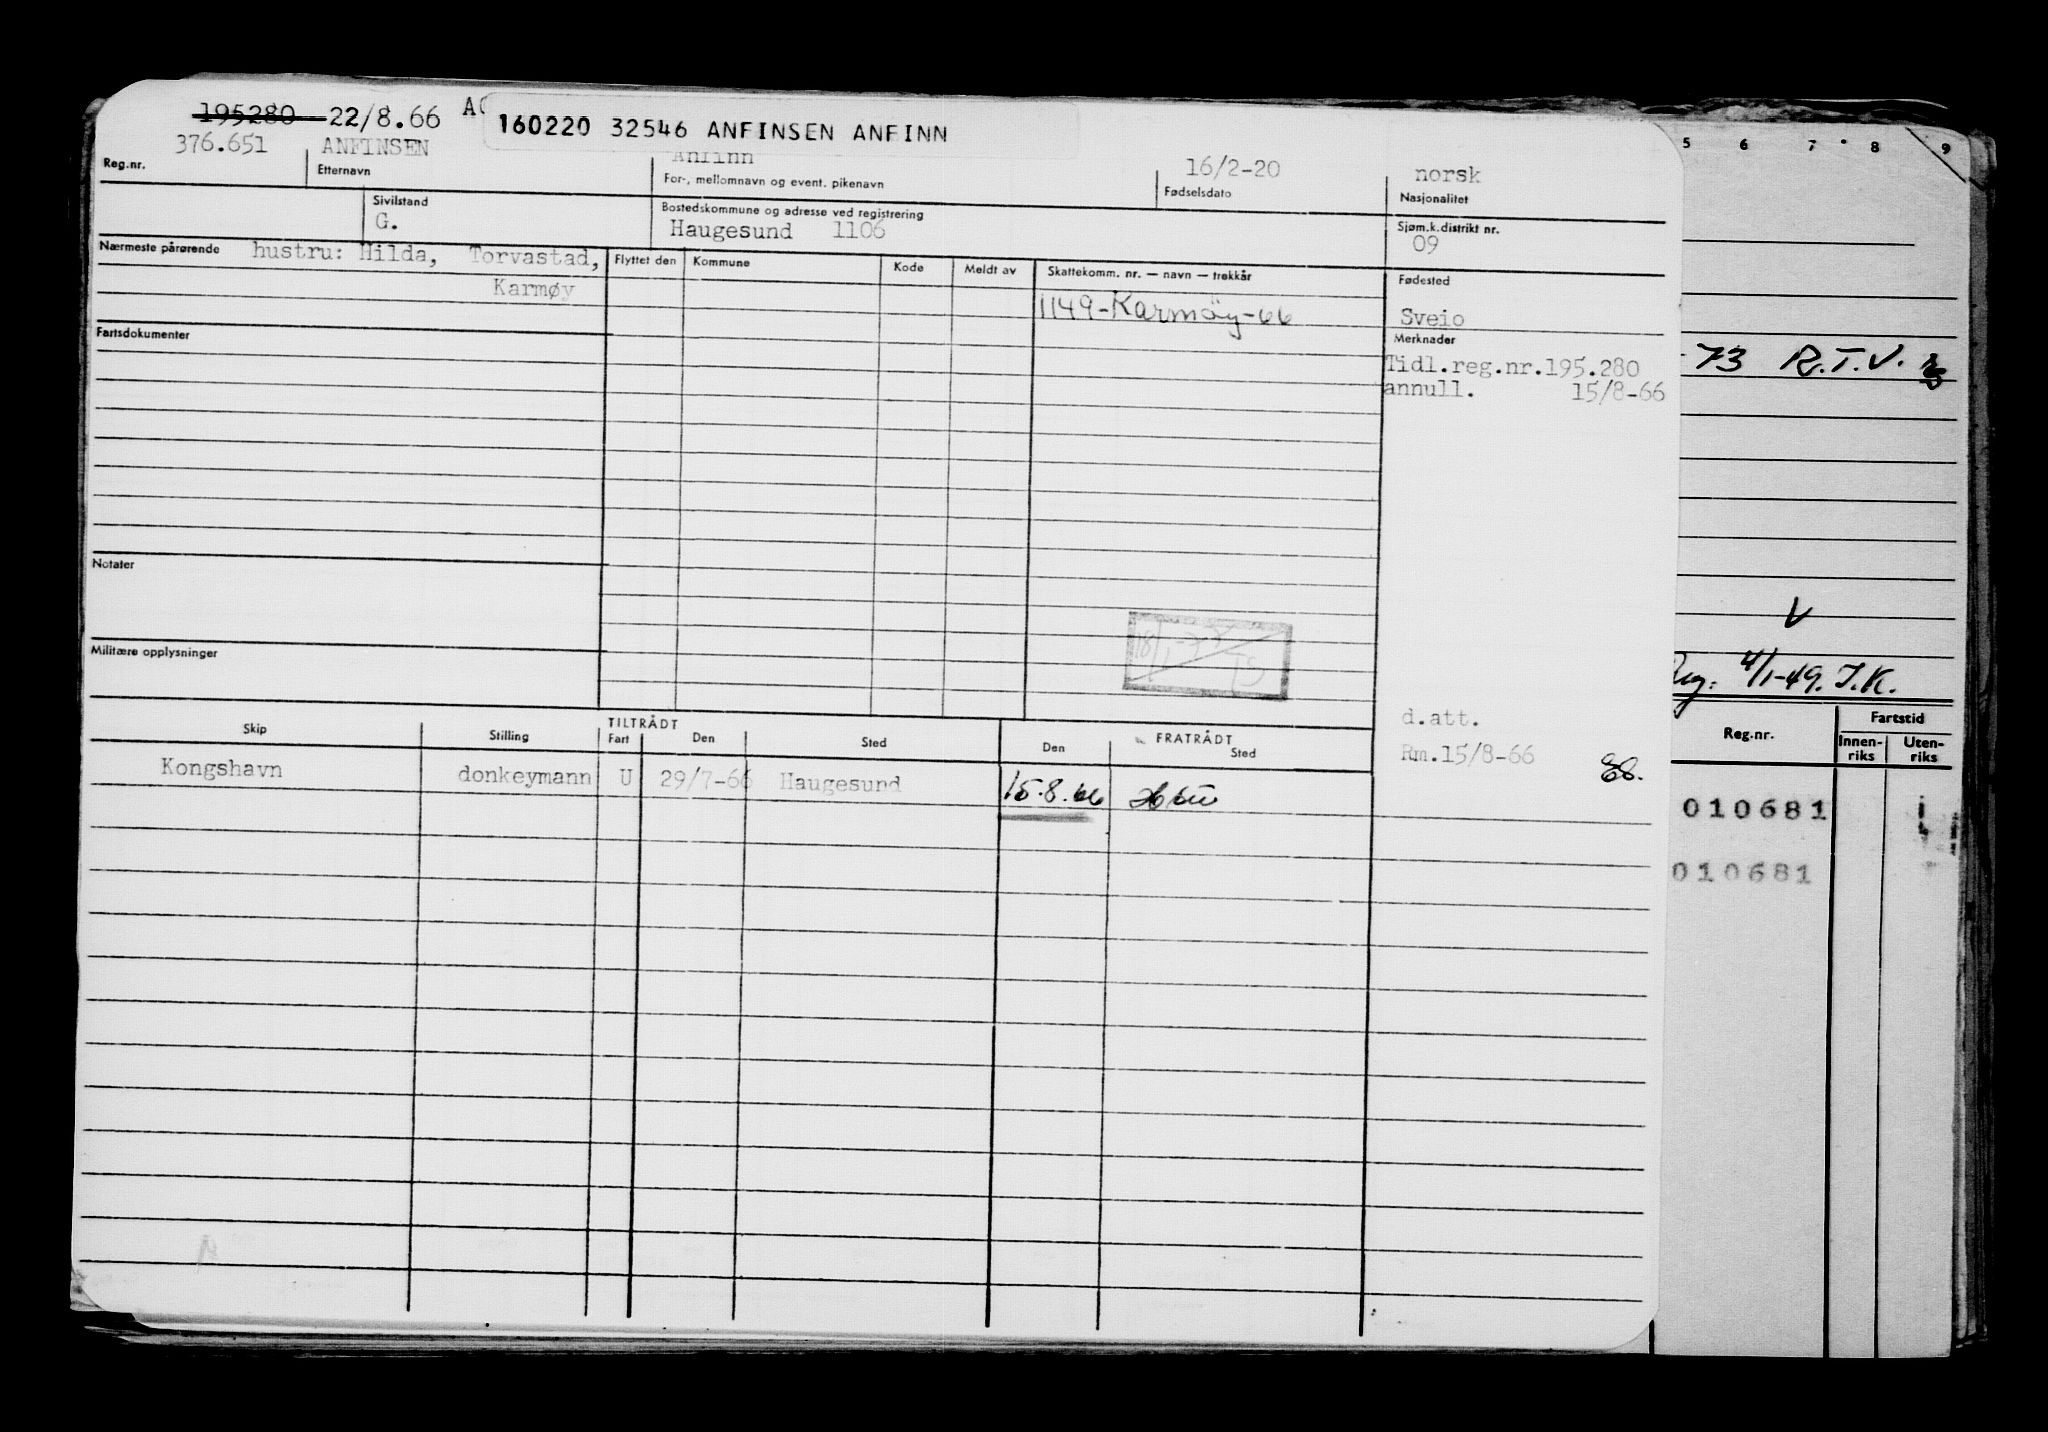 195280 22/8.66 A
160220 32546 ANFINSEN ANFINN
376.651 ANFINSEN Anfinn 16/2-20 norsk
Reg.nr. Etternavn For-, mellomnavn og event. pikenavn Fødselsdato Nasjonalitet
Sivilstand Bostedskommune og adresse ved registrering Sjøm.k.distrikt nr.
G. Haugesund 1106 09
Nærmeste pårørende hustru: Hilda, Torvastad, Flyttet den Kommune Kode Meldt av Skattekomm. nr. — navn — trekkår Fødested
Karmøy 1149-Karmøy-66 Sveio
Fartsdokumenter Merknader
Tidl.reg.nr.195.280
annull. 15/8-66
Notater
Militære opplysninger
18/1-77
TS
d.att.
Rm.15/8-66
Skip Stilling TILTRÅDT Fart Den Sted FRATRÅDT Den Sted
Kongshavn donkeymann U 29/7-66 Haugesund 15.8.66
5 6 7 8 9
73 R.T.V.
V
Reg: 4/1-49. J.K.
Reg.nr. Fartstid
Innen-riks Uten-riks
010681
010681